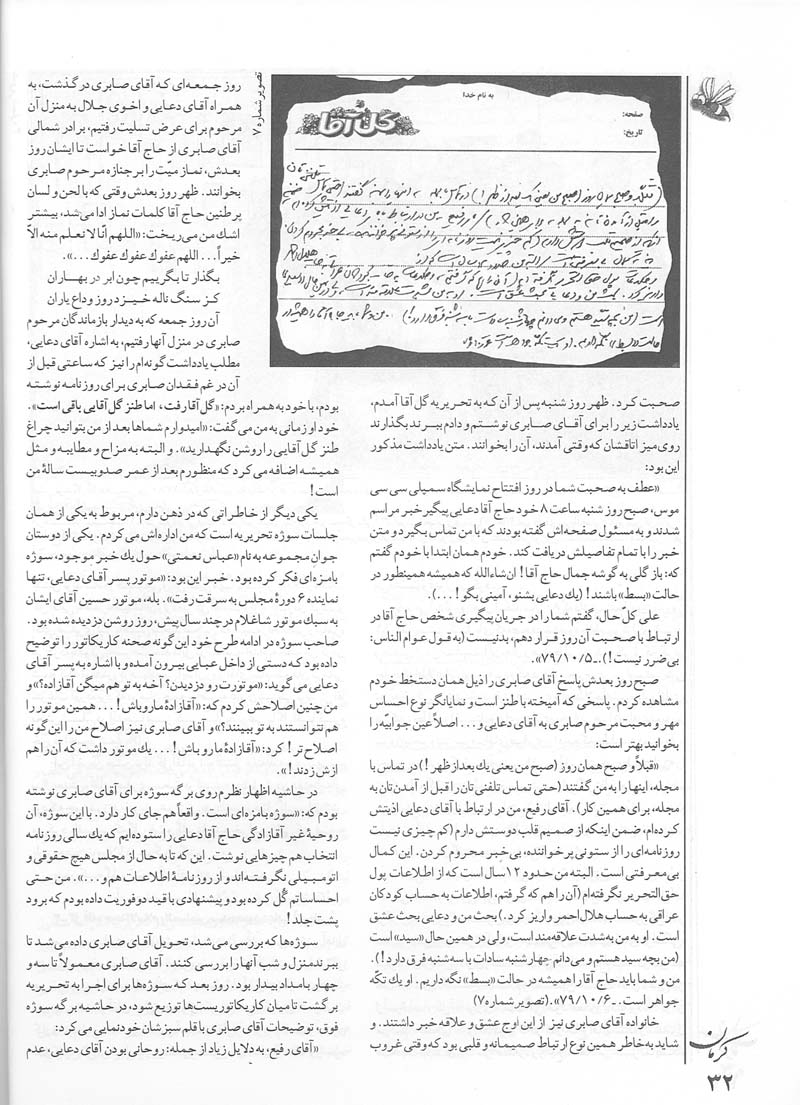 به نام خدا
صفحه:
تاریخ:
گل آقا
تصویر شماره ۷
صحبت کرد. ظهر روز شنبه پس از آن که به تحریریه گل‌آقا آمدم،
یادداشت زیر را برای آقای صابری نوشتم و دادم ببرند بگذارند
روی میز اتاقشان که وقتی آمدند، آن را بخوانند. متن یادداشت مذکور
این بود:
«عطف به صحبت شما در روز افتتاح نمایشگاه سمپلی سی سی
موس، صبح روز شنبه ساعت ۸ خود حاج آقا دعایی پیگیر خبر مراسم
شدند و به مسئول صفحه‌اش گفته بودند که با من تماس بگیرد و متن
خبر را با تمام تفاصیلش دریافت کند. خودم همان ابتدا با خودم گفتم
که: باز گلی به گوشه جمال حاج آقا! ان‌شاءالله که همیشه همینطور در
حالت «بسط» باشند! (یك دعایی بشنو، آمینی بگو!...).
علی کلّ حال، گفتم شما را در جریان پیگیری شخص حاج آقا در
ارتباط با صحبت آن روز قرار دهم، بد نیست (به قول عوام الناس:
بی‌ضرر نیست!).ـ ۷۹/۱۰/۵».
صبح روز بعدش پاسخ آقای صابری را ذیل همان دستخط خودم
مشاهده کردم. پاسخی که آمیخته با طنز است و نمایانگر نوع احساس
مهر و محبت مرحوم صابری به آقای دعایی و... اصلاً عین جوابیّه را
بخوانید بهتر است:
«قبلاً و صبح همان روز (صبح من یعنی یك بعدازظهر!) در تماس با
مجله، اینها را به من گفتند (حتی تماس تلفنی تان را قبل از آمدن‌تان به
مجله، برای همین کار). آقای رفیع، من در ارتباط با آقای دعایی اذیتش
کرده‌ام، ضمن اینکه از صمیم قلب دوستش دارم (کم چیزی نیست
روزنامه‌ای را از ستونی پرخواننده، بی‌خبر محروم کردن. این کمال
بی‌معرفتی است. البته من حدود ۱۲ سال است که از اطلاعات پول
حق‌التحریر نگرفته‌ام (آن را هم که گرفتم، اطلاعات به حساب کودکان
عراقی به حساب هلال احمر واریز کرد.) بحث من و دعایی بحث عشق
است. او به من به‌شدت علاقه‌مند است، ولی در همین حال «سید» است
(من بچه سید هستم و می‌دانم چهارشنبه سادات با سه‌شنبه فرق دارد!).
من و شما باید حاج آقا را همیشه در حالت «بسط» نگه داریم. او یك تکّه
جواهر است. ـ ۷۹/۱۰/۶».(تصویر شماره ۷)
خانواده آقای صابری نیز از این اوج عشق و علاقه خبر داشتند. و
شاید به‌خاطر همین نوع ارتباط صمیمانه و قلبی بود که وقتی غروب
روز جمعه‌ای که آقای صابری درگذشت، به
همراه آقای دعایی و اخوی جلال به منزل آن
مرحوم برای عرض تسلیت رفتیم، برادر شمالی
آقای صابری از حاج آقا خواست تا ایشان روز
بعدش، نماز میّت را بر جنازه مرحوم صابری
بخوانند. ظهر روز بعدش وقتی که با لحن و لسان
پرطنین حاج آقا کلمات نماز ادا می‌شد، بیشتر
اشك من می‌ریخت: «اللهم انّا لا نعلم منه الاّ
خیراً... اللهم عفوك عفوك عفوك...».
بگذار تا بگرییم چون ابر در بهاران
کز سنگ ناله خیزد روز وداع یاران
آن روز جمعه که به دیدار بازماندگان مرحوم
صابری در منزل آنها رفتیم، به اشاره آقای دعایی،
مطلب یادداشت گونه‌ام را نیز که ساعتی قبل از
آن در غم فقدان صابری برای روزنامه نوشته
بودم، با خود به همراه بردم: «گل‌آقا رفت، اما طنز گل‌آقایی باقی است».
خود او زمانی به من می‌گفت: «امیدوارم شماها بعد از من بتوانید چراغ
طنز گل‌آقایی را روشن نگهدارید». و البته به مزاح و مطایبه و مثل
همیشه اضافه می‌کرد که منظورم بعد از عمر صد و بیست سالهٔ من
است!
یکی دیگر از خاطراتی که در ذهن دارم، مربوط به یکی از همان
جلسات سوژه تحریریه است که من اداره‌اش می‌کردم. یکی از دوستان
جوان مجموعه به نام «عباس نعمتی» حول یك خبر موجود، سوژه
بامزه‌ای فکر کرده بود. خبر این بود: «موتور پسر آقای دعایی، تنها
نماینده ۶ دورهٔ مجلس به سرقت رفت». بله، موتور حسین آقای ایشان
به سبك موتور شاغلام در چند سال پیش، روز روشن دزدیده شده بود.
صاحب سوژه در ادامه طرح خود این‌گونه صحنه کاریکاتور را توضیح
داده بود که دستی از داخل عبایی بیرون آمده و با اشاره به پسر آقای
دعایی می‌گوید: «موتورت رو دزدیدن؟ آخه به تو هم میگن آقازاده؟» و
من چنین اصلاحش کردم که: «آقازادهٔ ما رو باش!... همین موتور را
هم نتوانستند به تو ببینند؟» و آقای صابری نیز اصلاح من را این گونه
اصلاح‌تر! کرد: «آقازادهٔ ما رو باش!... یك موتور داشت که آن را هم
ازش زدند!».
در حاشیه اظهار نظرم روی برگه سوژه برای آقای صابری نوشته
بودم که: «سوژه بامزه‌ای است. واقعاً هم جای کار دارد. با این سوژه، آن
روحیهٔ غیر آقازادگی حاج آقا دعایی را ستوده‌ایم که یك سالی روزنامه
انتخاب هم چیزهایی نوشت. این که تا به حال از مجلس هیچ حقوقی و
اتومبیلی نگرفته‌اند و از روزنامهٔ اطلاعات هم و...». من حتی
احساساتم گُل کرده بود و پیشنهادی با قید دوفوریت داده بودم که برود
پشت جلد!
سوژه‌ها که بررسی می‌شد، تحویل آقای صابری داده می‌شد تا
ببرند منزل و شب آنها را بررسی کنند. آقای صابری معمولاً تا سه و
چهار بامداد بیدار بود. روز بعد که سوژه‌ها برای اجرا به تحریریه
برگشت تا میان کاریکاتوریست‌ها توزیع شود، در حاشیه برگه سوژه
فوق، توضیحات آقای صابری با قلم سبزشان خودنمایی می‌کرد:
«آقای رفیع، به دلایل زیاد از جمله: روحانی بودن آقای دعایی، عدم
کرمان
۳۲